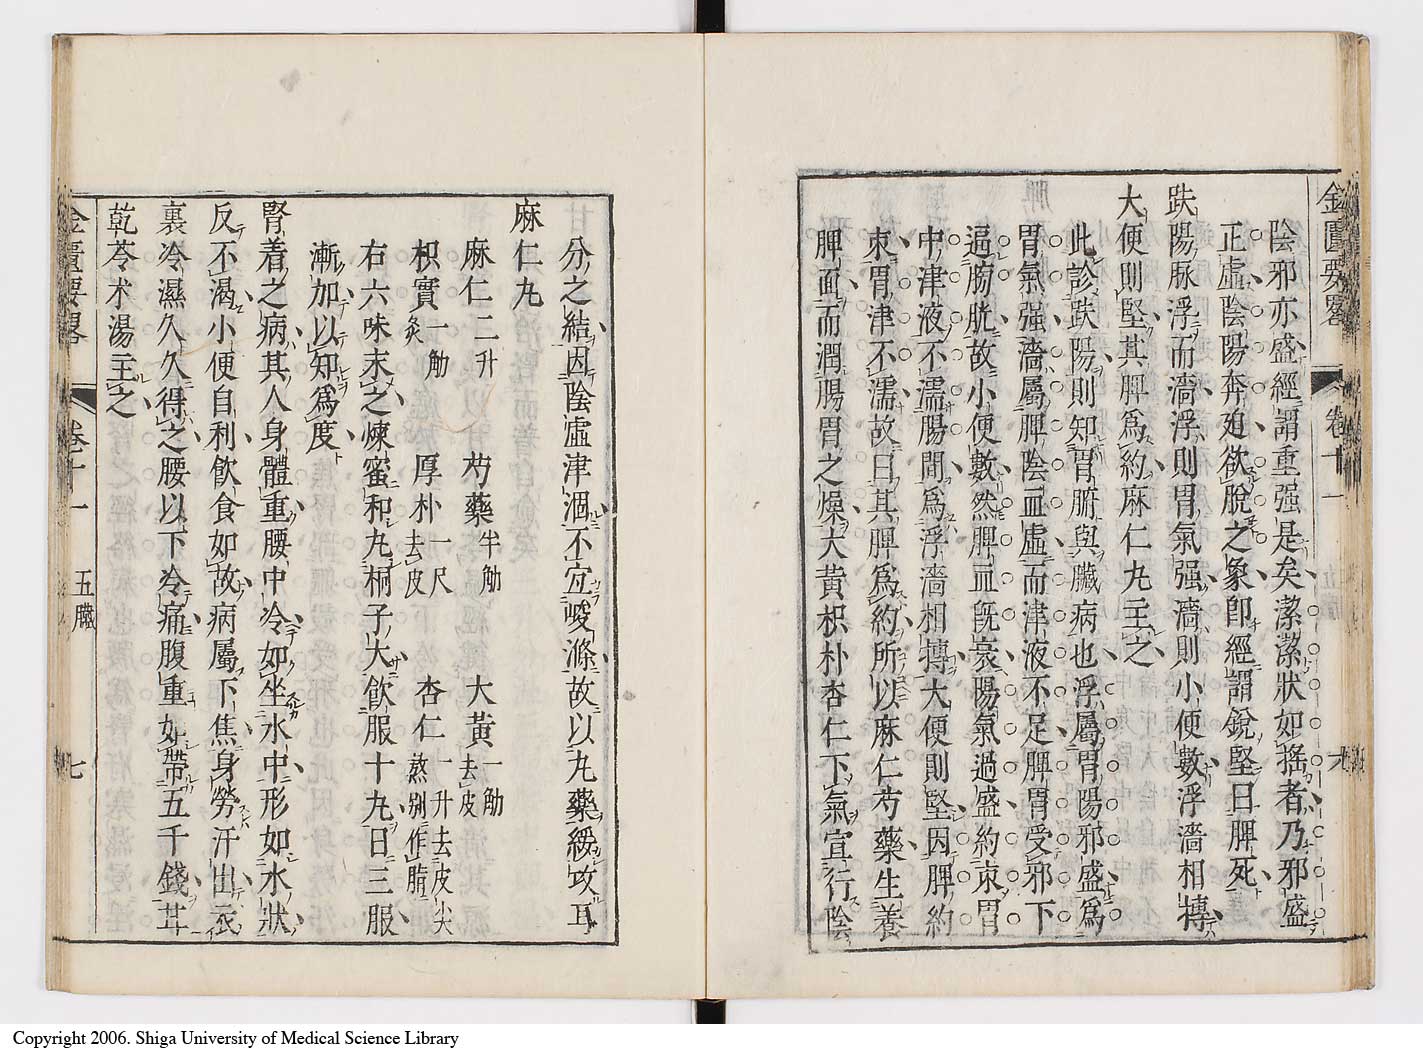 金匱要畧 卷十一
陰邪亦盛經謂重强是矣潔潔狀如揺者乃邪盛
正虛陰陽奔廹欲脫之象卽經謂銳堅曰脾死
趺陽脉浮而濇浮則胃氣强濇則小便數浮濇相摶
大便則堅其脾爲約麻仁丸主之
此診趺陽則知胃腑與臟病也浮屬胃陽邪盛爲
胃氣强濇屬脾陰血虛而津液不足脾胃受邪下
逼膀胱故小便數然脾血旣衰陽氣過盛約束胃
中津液不濡腸間爲浮濇相摶大便則堅因脾約
束胃津不濡故曰其脾爲約所以麻仁芍藥生養
脾血而潤腸胃之燥大黃枳朴杏仁下氣宣行陰
分之結因陰虛津涸不宜峻滌故以丸藥緩攻耳
麻仁丸
麻仁二升 芍藥半觔 大黃一觔去皮
枳實一觔炙 厚朴一尺去皮 杏仁一升去皮尖熬别作脂
右六味末之煉蜜和丸桐子大飮服十丸日三服
漸加以知爲度
腎着之病其人身體重腰中冷如坐水中形如水狀
反不渴小便自利飮食如故病屬下焦身勞汗出衣
裏冷濕久久得之腰以下冷痛腹重如帶五千錢甘
乾苓术湯主之
金匱要畧 卷十一 五臟 七
Copyright 2006. Shiga University of Medical Science Library